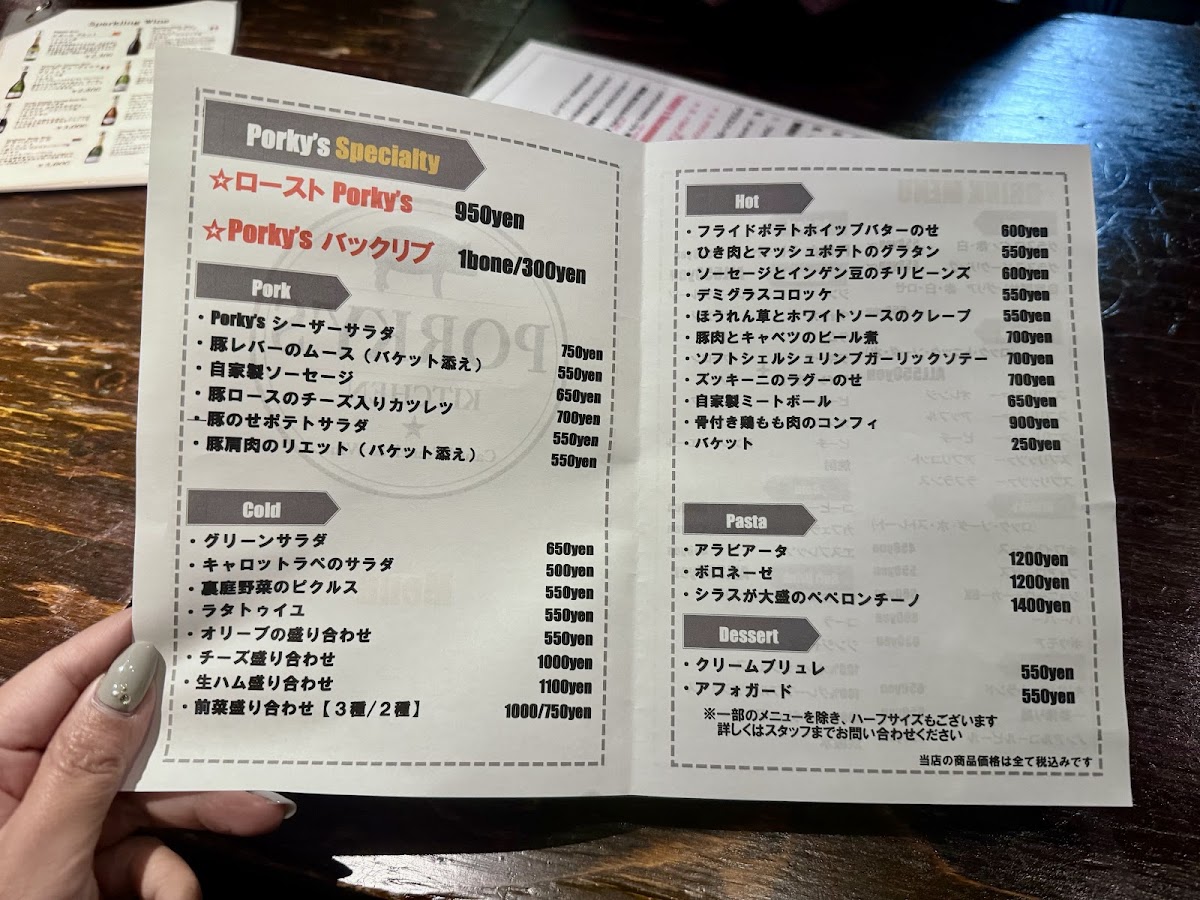 Sparkling Wine
Porky's Specialty
☆ロースト Porky's 950yen
☆Porky's バックリブ 1bone/300yen
Pork
・Porky's シーザーサラダ 750yen
・豚レバーのムース（バケット添え） 550yen
・自家製ソーセージ 650yen
・豚ロースのチーズ入りカツレツ 700yen
・豚のせポテトサラダ 550yen
・豚肩肉のリエット（バケット添え） 550yen
PORKY'S
KITCHEN
Cold
・グリーンサラダ 650yen
・キャロットラペのサラダ 500yen
・裏庭野菜のピクルス 550yen
・ラタトゥイユ 550yen
・オリーブの盛り合わせ 550yen
・チーズ盛り合わせ 1000yen
・生ハム盛り合わせ 1100yen
・前菜盛り合わせ【３種/２種】 1000/750yen
Hot
・フライドポテトホイップバターのせ 600yen
・ひき肉とマッシュポテトのグラタン 550yen
・ソーセージとインゲン豆のチリビーンズ 600yen
・デミグラスコロッケ 550yen
・ほうれん草とホワイトソースのクレープ 550yen
・豚肉とキャベツのビール煮 700yen
・ソフトシェルシュリンプガーリックソテー 700yen
・ズッキーニのラグーのせ 700yen
・自家製ミートボール 650yen
・骨付き鶏もも肉のコンフィ 900yen
・バケット 250yen
Pasta
・アラビアータ 1200yen
・ボロネーゼ 1200yen
・シラスが大盛のペペロンチーノ 1400yen
Dessert
・クリームブリュレ 550yen
・アフォガード 550yen
※一部のメニューを除き、ハーフサイズもございます
詳しくはスタッフまでお問い合わせください
当店の商品価格は全て税込みです